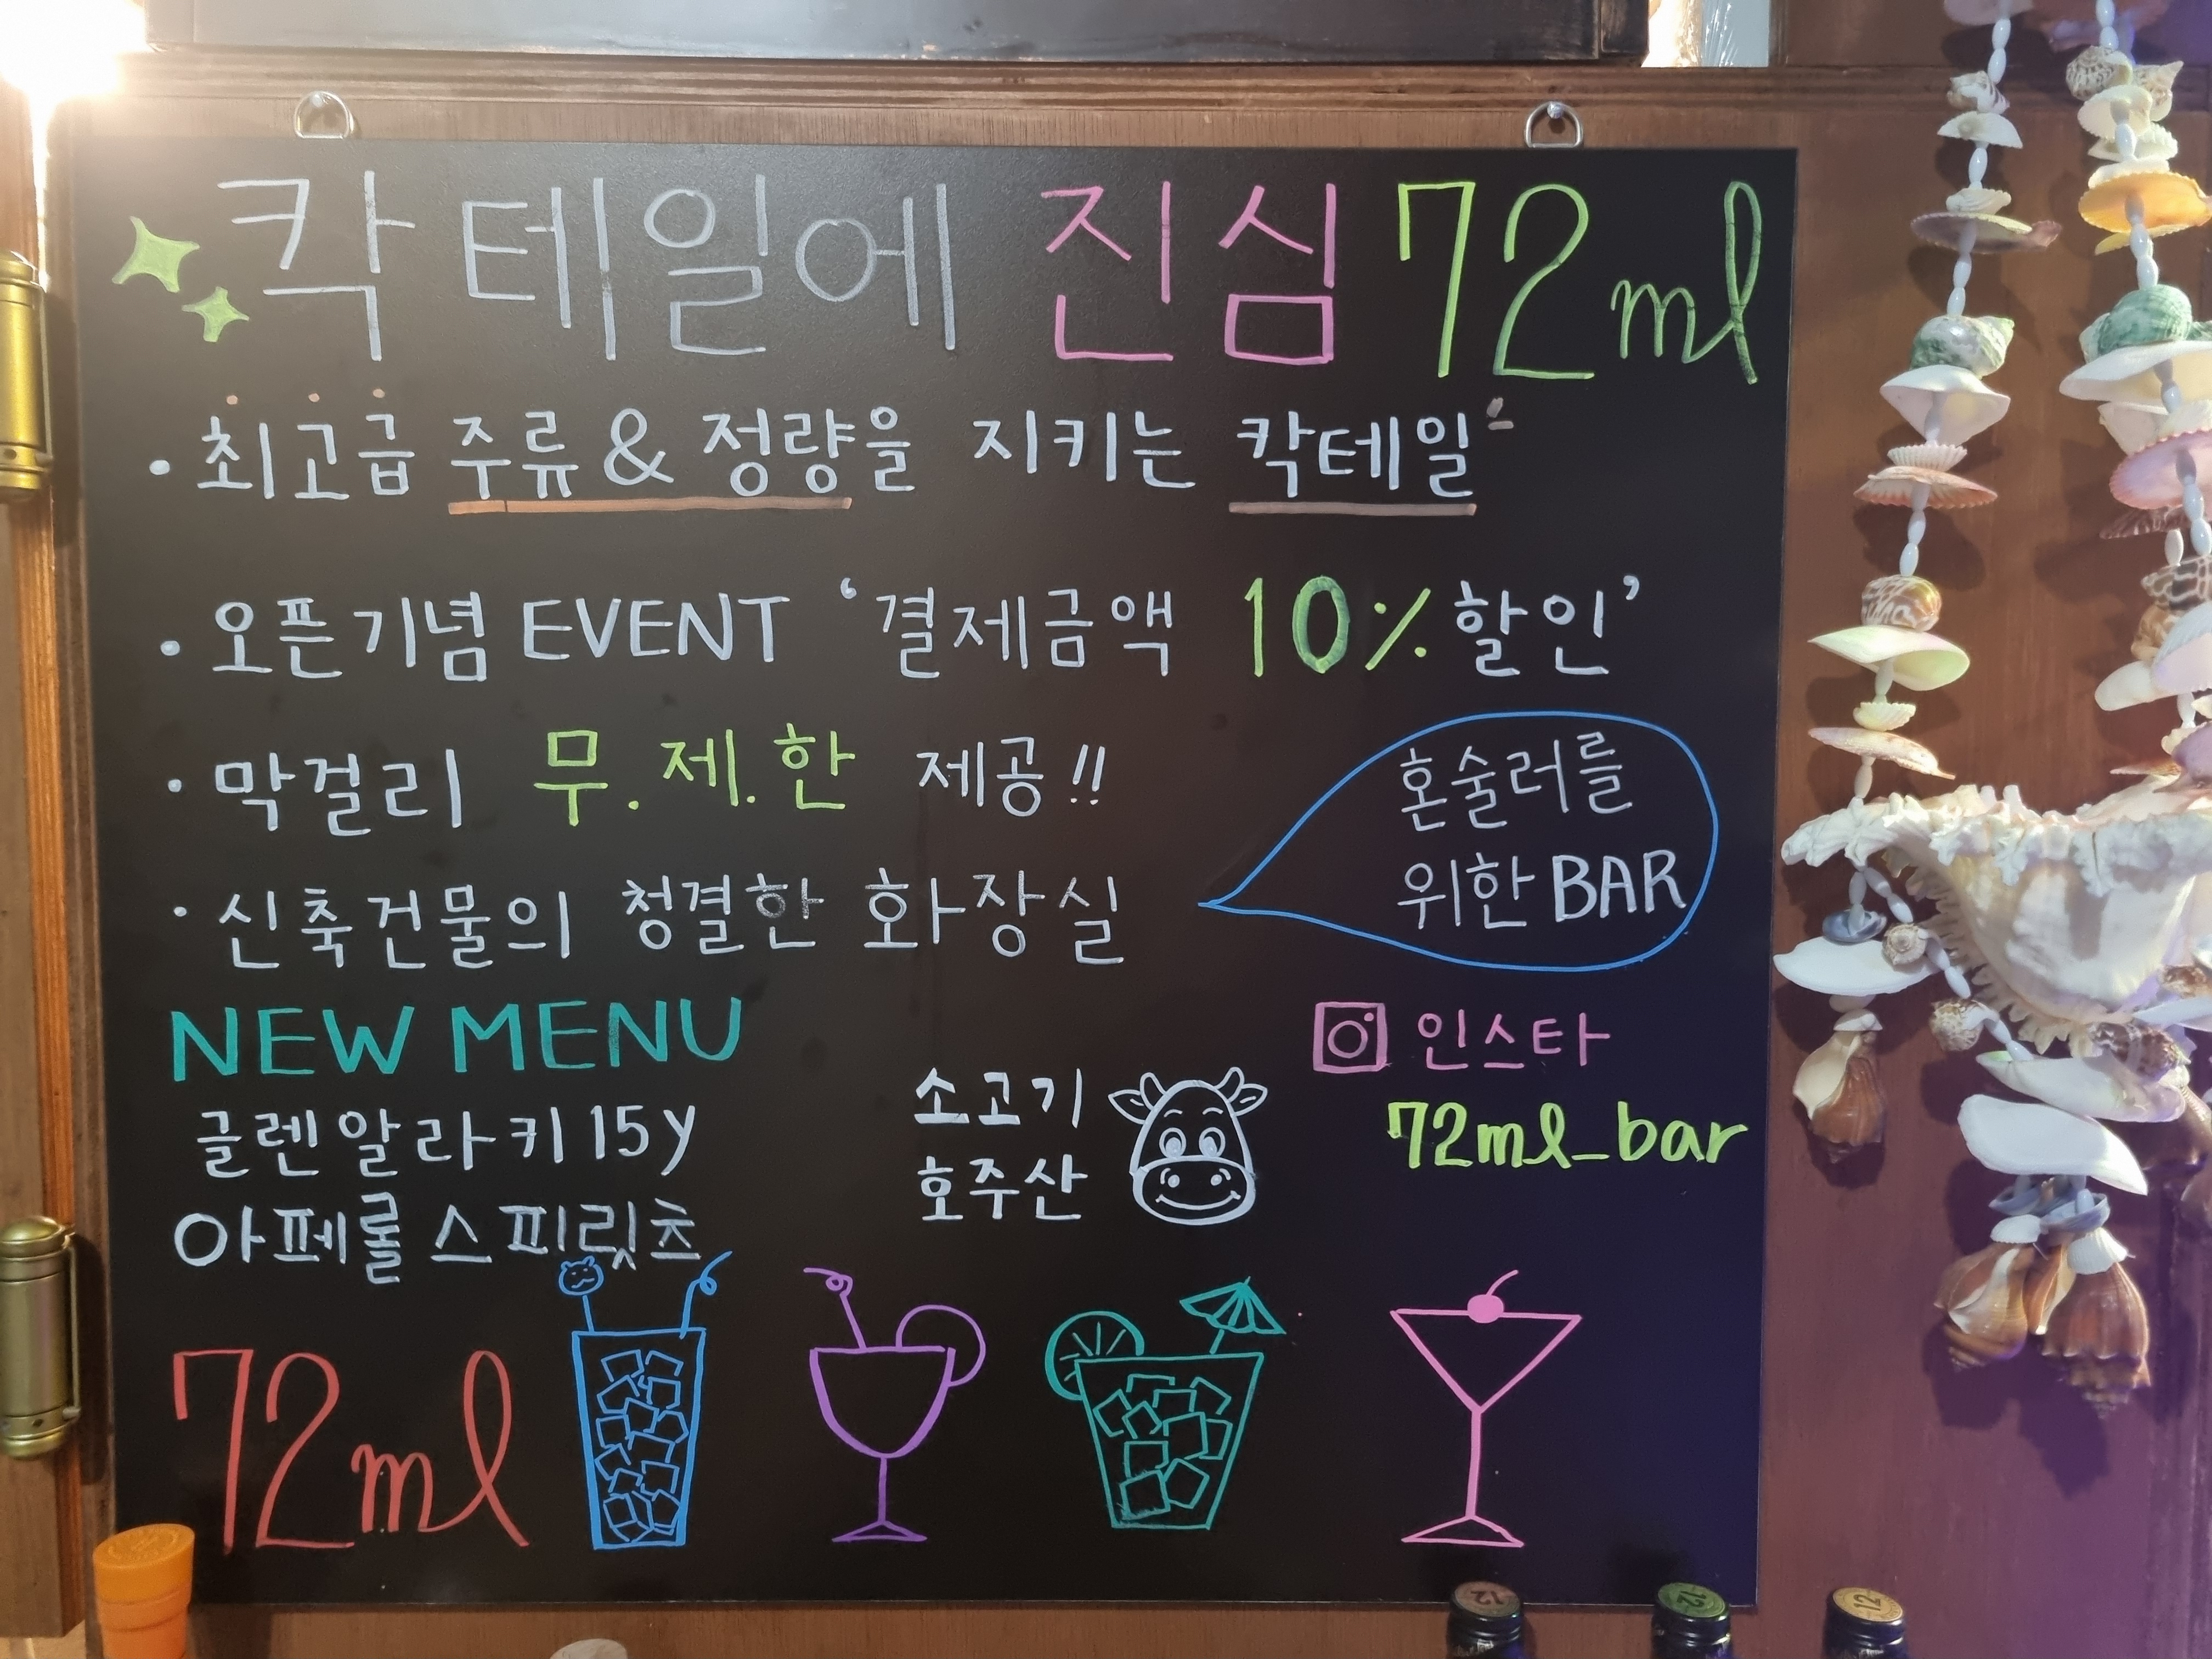 칵테일에 진심 72ml
· 최고급 주류 & 정량을 지키는 칵테일
· 오픈기념 EVENT ‘결제금액 10% 할인’
· 막걸리 무.제.한 제공!!
· 신축건물의 청결한 화장실
혼술러를
위한 BAR
NEW MENU
글렌알라키 15y
아페롤 스피릿츠
소고기
호주산
인스타
72ml_bar
72ml
12
12
12